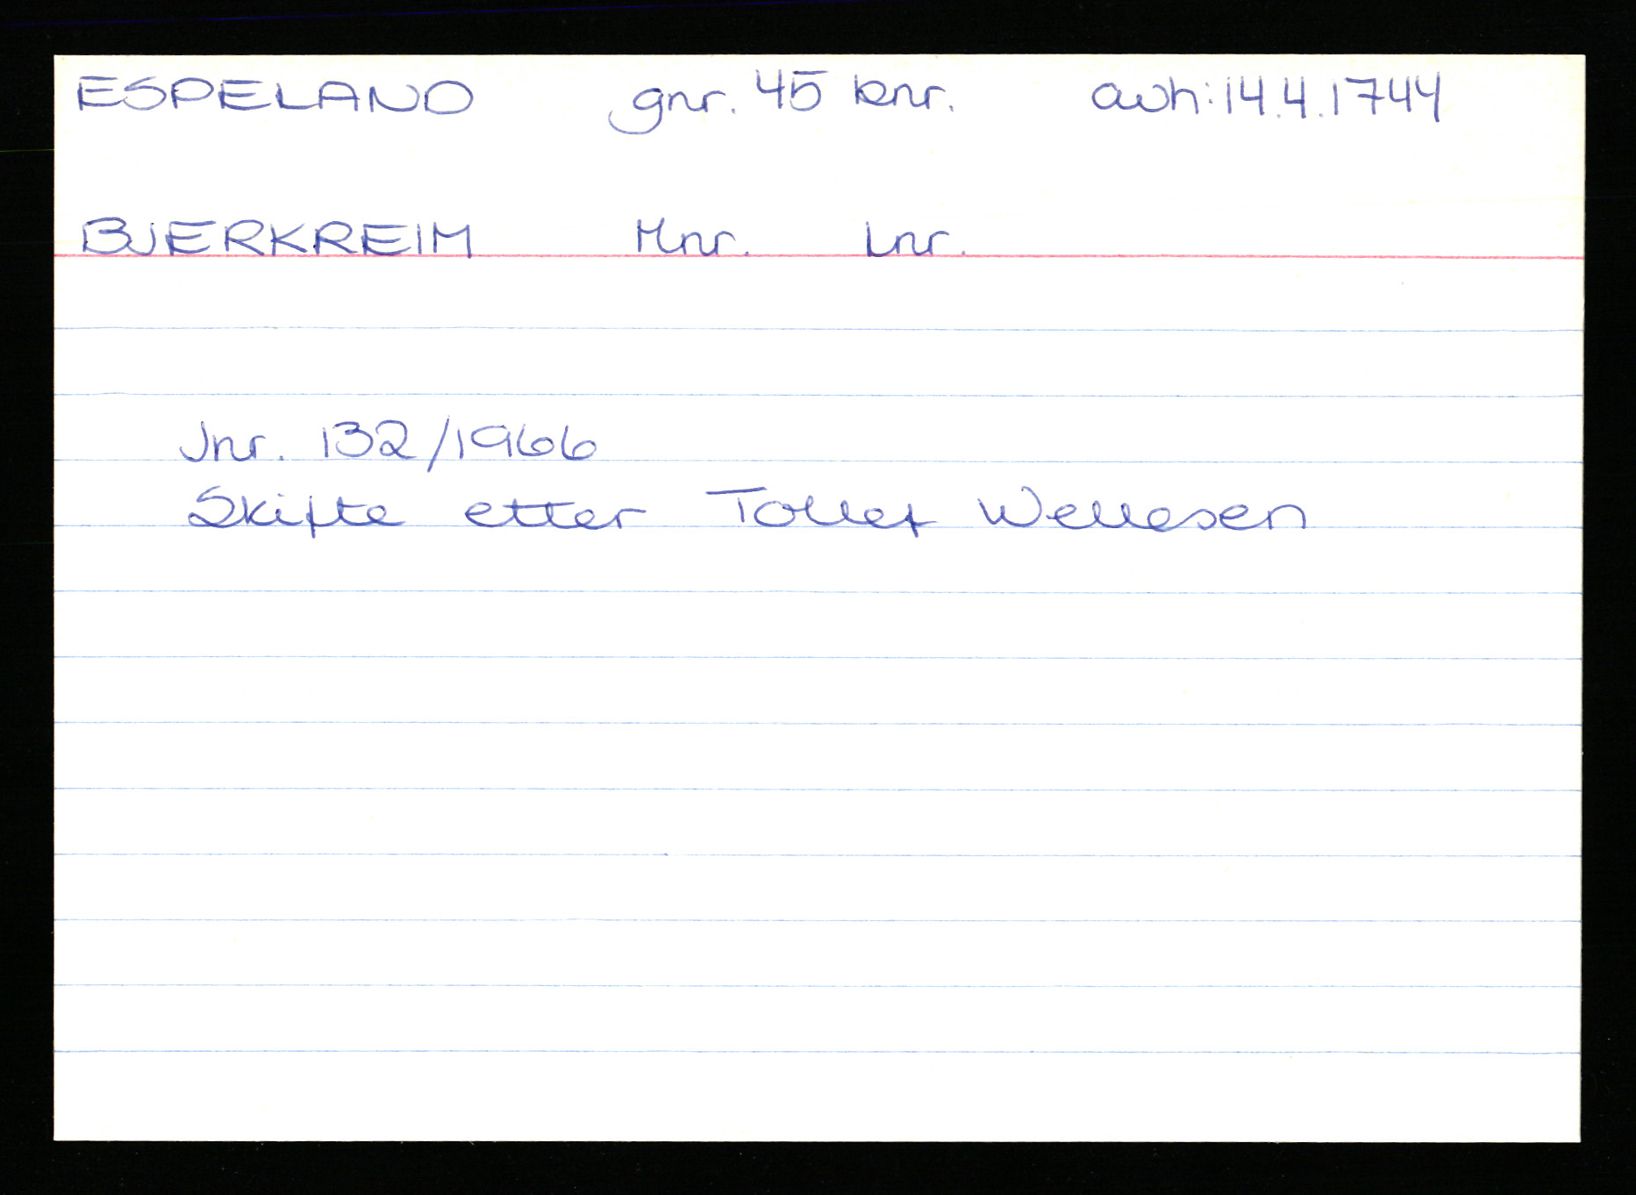 ESPELAND gnr. 45 bnr. avh: 14.4.1744
BJERKREIM Mnr. Lnr.
Jnr. 132/1966
Skifte etter Tollef Wellesen